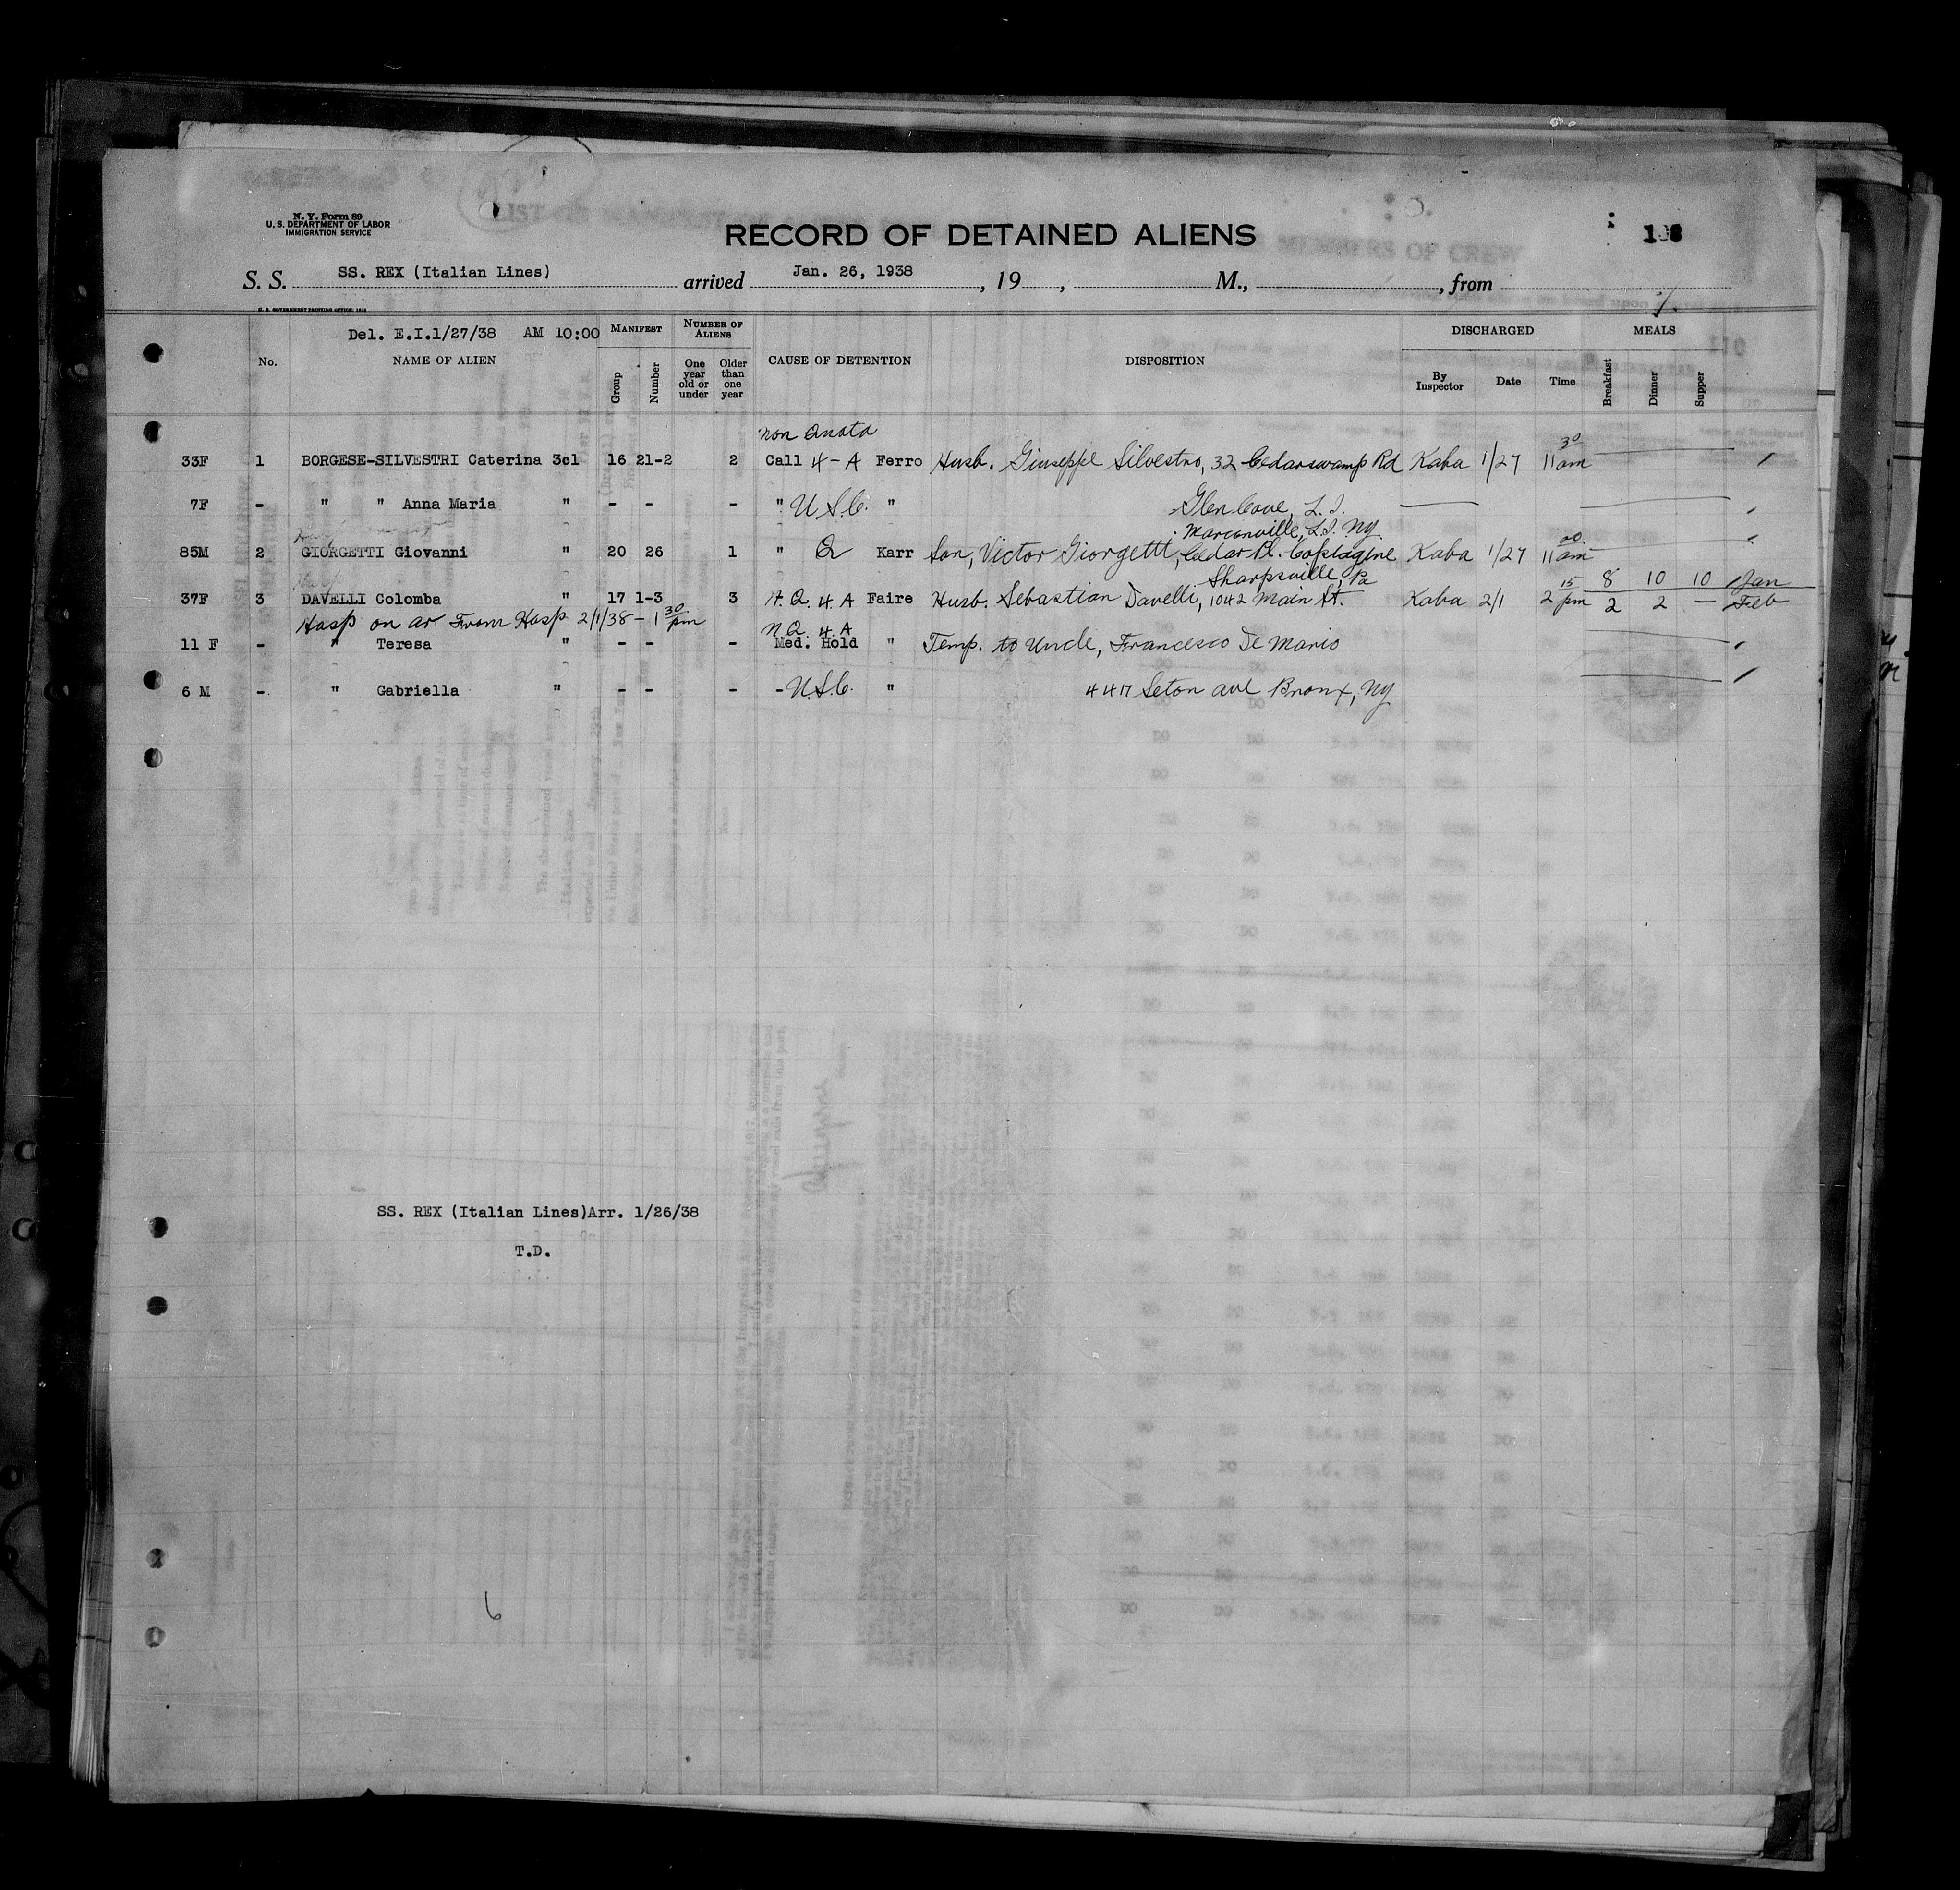 N. Y. Form 89
U. S. DEPARTMENT OF LABOR
IMMIGRATION SERVICE
RECORD OF DETAINED ALIENS
S. S. SS. REX (Italian Lines) arrived Jan. 26, 1938, 19 , M., , from
U. S. GOVERNMENT PRINTING OFFICE: 1931
Del. E.I.1/27/38 AM 10:00 MANIFEST NUMBER OF ALIENS DISCHARGED MEALS
No. NAME OF ALIEN Group Number One year old or under Older than one year CAUSE OF DETENTION DISPOSITION By Inspector Date Time Breakfast Dinner Supper
non Quota
33F 1 BORGESE-SILVESTRI Caterina 3cl 16 21-2 2 Call 4-A Ferro Husb. Giuseppe Silvestro, 32 Cedarswamp Rd Kaba 1/27 11 30 am
7F - " " Anna Maria " - - - " U.S.C. " Glen Cove, L. I.
Marconville, L.I. NY.
85M 2 GIORGETTI Giovanni " 20 26 1 " Q Karr Son, Victor Giorgetti, Cedar Pl. Copiague Kaba 1/27 11 00 am
Sharpsville, Pa 8 10 10 Jan
37F 3 DAVELLI Colomba " 17 1-3 3 N.Q. 4 A Faire Husb. Sebastian Davelli, 1042 Main St. Kaba 2/1 2 15 pm 2 2 - Feb
Hosp on ar From Hosp 2/1/38 - 1 30 pm N.Q. 4 A
11 F - " Teresa " - - - Med. Hold " Temp. to Uncle, Francesco De Mario
6 M - " Gabriella " - - - - U.S.C. " 4417 Seton ave Bronx, NY
SS. REX (Italian Lines)Arr. 1/26/38
T.D.
6